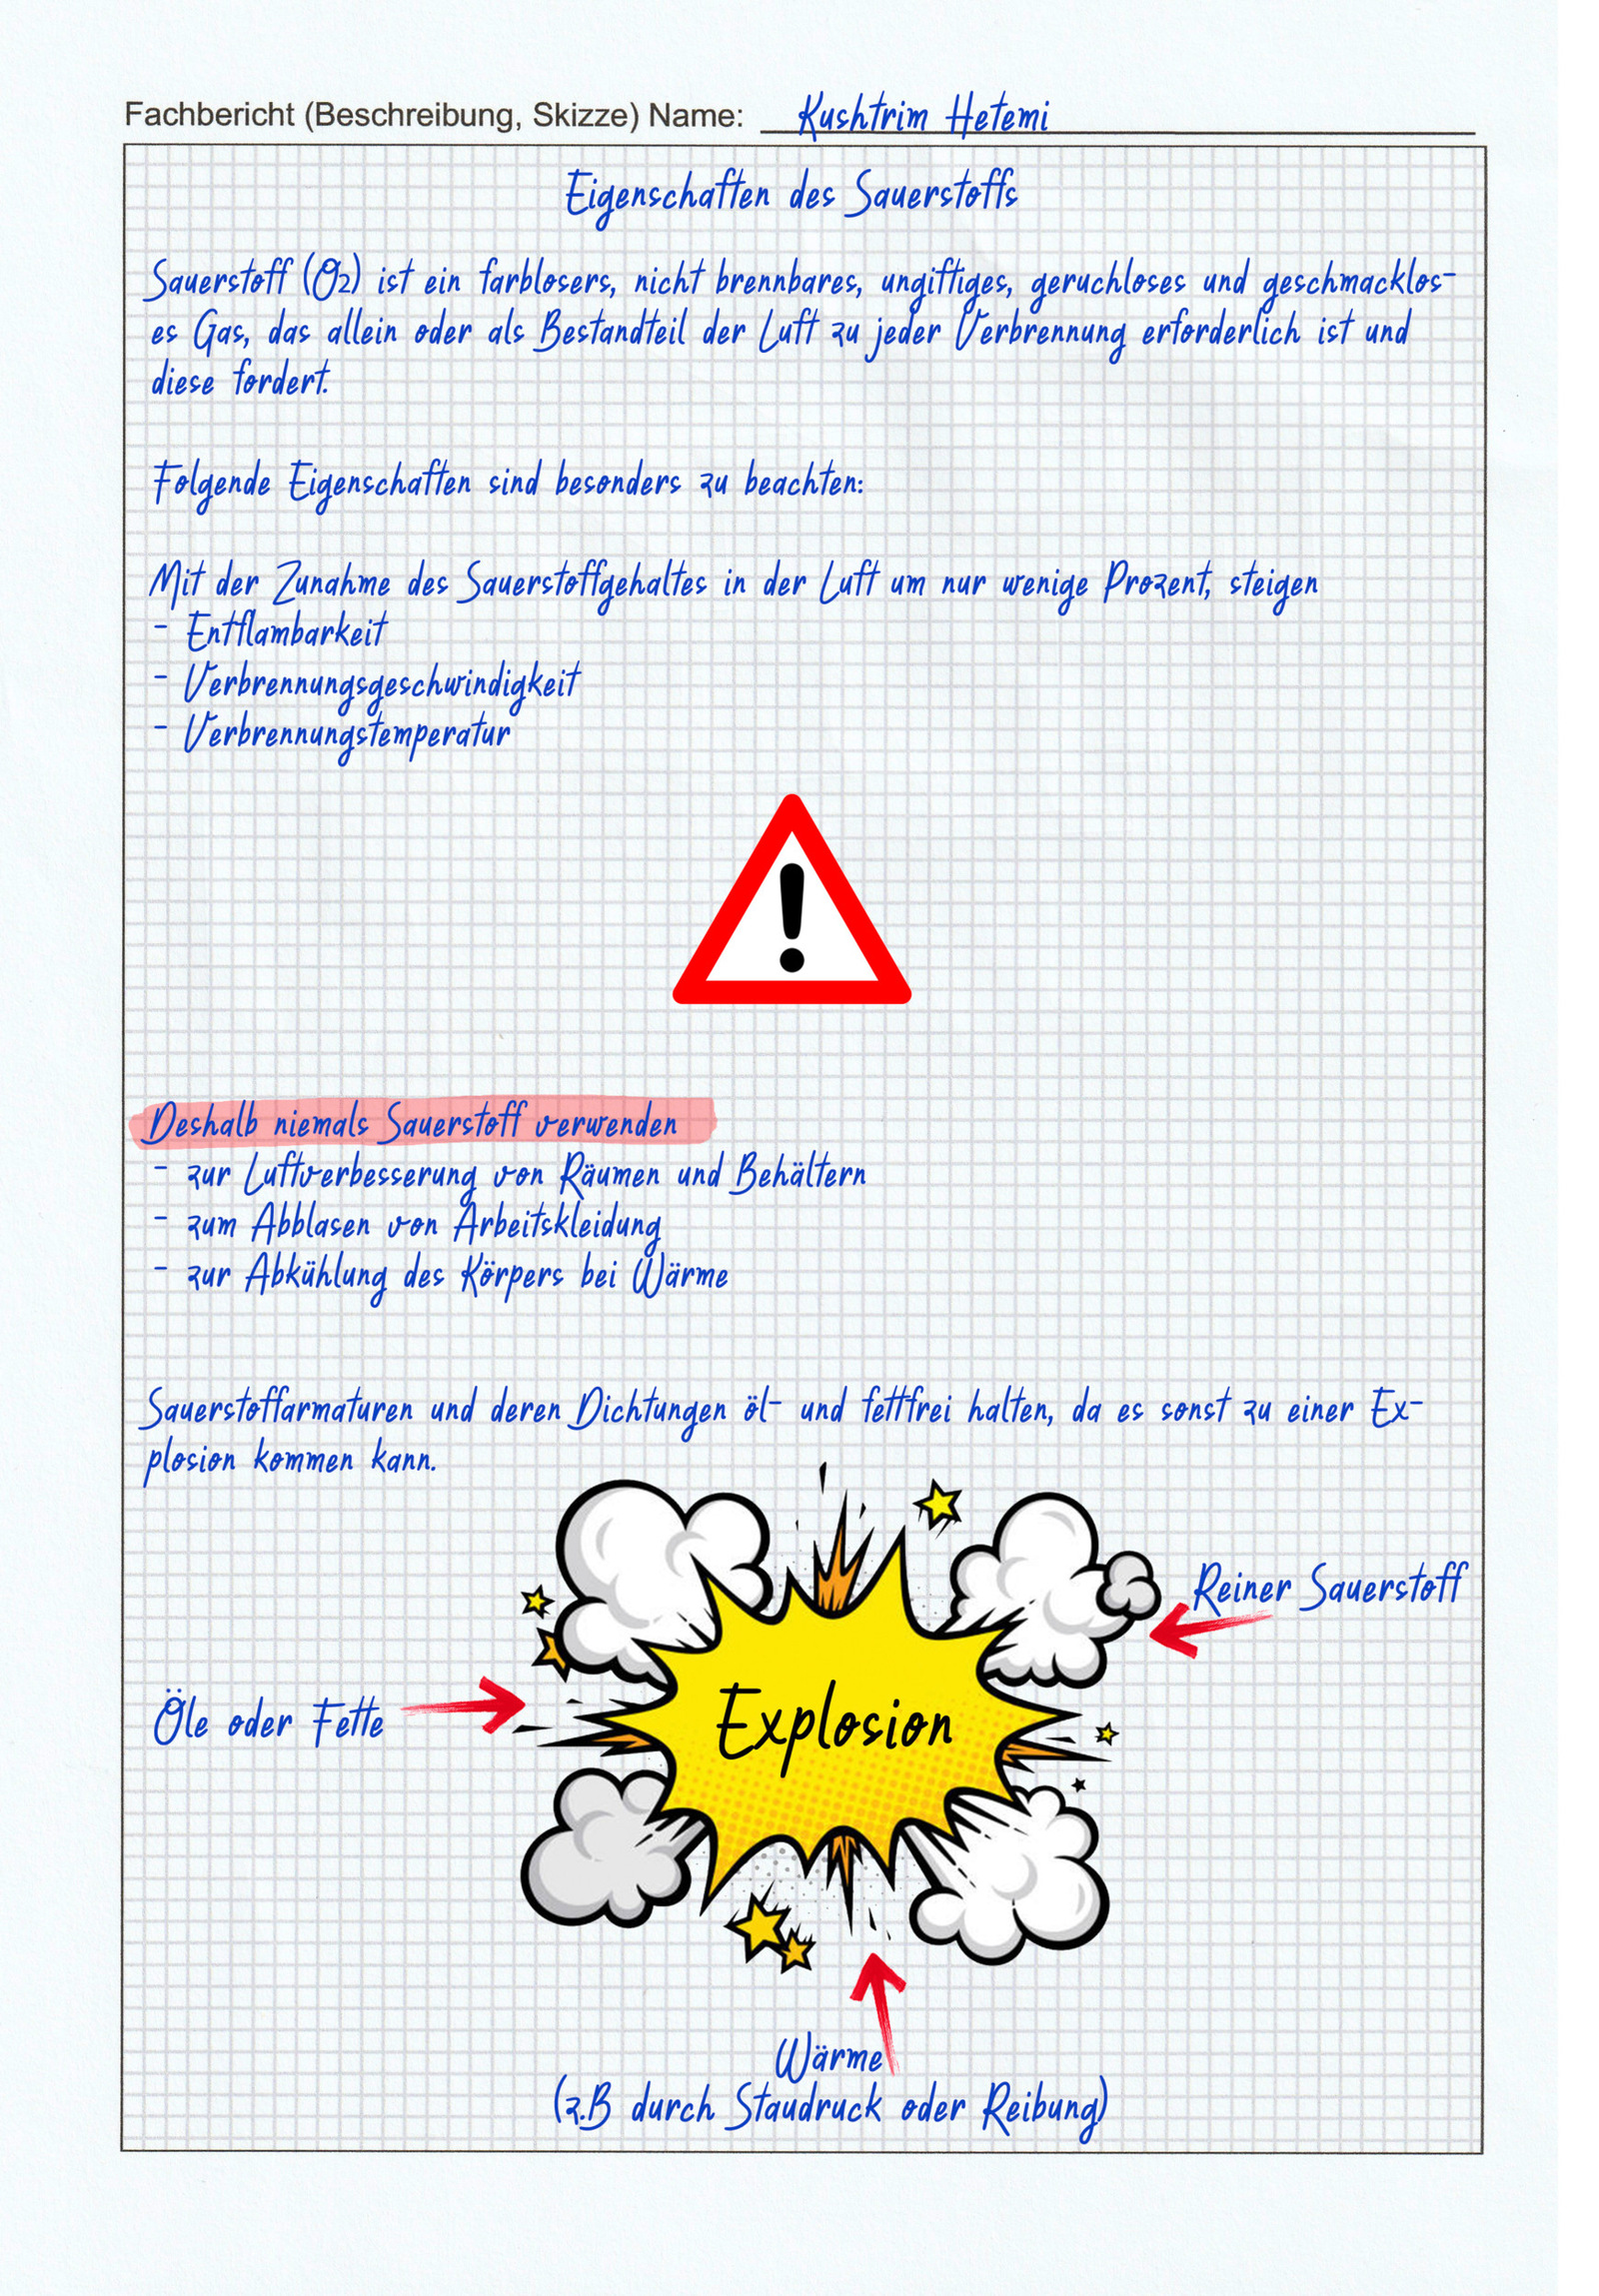 Fachbericht (Beschreibung, Skizze) Name: Kushtrim Hetemi
Eigenschaften des Sauerstoffs
Sauerstoff (O2) ist ein farblosers, nicht brennbares, ungiftiges, geruchloses und geschmacklos-
es Gas, das allein oder als Bestandteil der Luft zu jeder Verbrennung erforderlich ist und
diese fordert.
Folgende Eigenschaften sind besonders zu beachten:
Mit der Zunahme des Sauerstoffgehaltes in der Luft um nur wenige Prozent, steigen
- Entflambarkeit
- Verbrennungsgeschwindigkeit
- Verbrennungstemperatur
!
Deshalb niemals Sauerstoff verwenden
- zur Luftverbesserung von Räumen und Behältern
- zum Abblasen von Arbeitskleidung
- zur Abkühlung des Körpers bei Wärme
Sauerstoffarmaturen und deren Dichtungen öl- und fettfrei halten, da es sonst zu einer Ex-
plosion kommen kann.
Reiner Sauerstoff
Öle oder Fette
Explosion
Wärme
(z.B durch Staudruck oder Reibung)